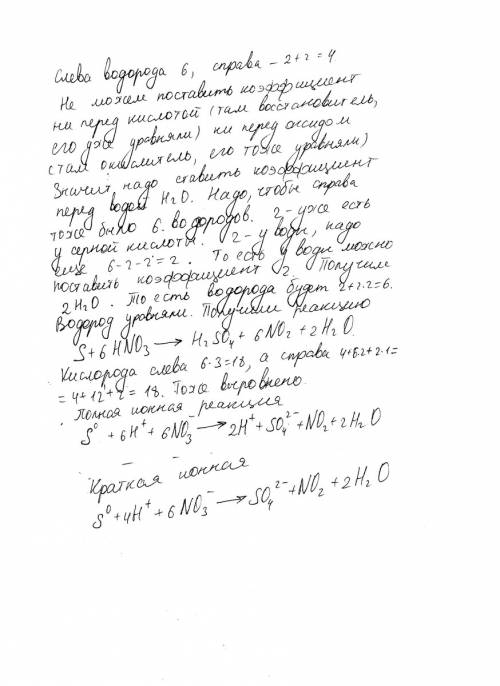 Слева водорода 6, справа - 2+2=4
Не можем поставить коэффициент
ни перед кислотой (там восстановитель,
его уже уравняли) ни перед оксидом
(там окислитель, его тоже уравняли)
Значит надо ставить коэффициент
перед водой H₂O. Надо, чтобы справа
тоже было 6 водородов. 2 - уже есть
у серной кислоты. 2 - у воды, надо
еще 6-2-2=2. То есть у воды можно
поставить коэффициент 2. Получим
2H₂O. То есть водорода будет 2+2·2=6.
Водород уравняли. Получили реакцию
S+6HNO₃ → H₂SO₄ + 6NO₂ + 2H₂O.
Кислорода слева 6·3=18, а справа 4+6·2+2·1=
=4+12+2=18. Тоже выровнено.
Полная ионная реакция
S⁰ + 6H⁺ + 6NO₃⁻ → 2H⁺ + SO₄²⁻ + NO₂ + 2H₂O
Краткая ионная
S⁰ + 4H⁺ + 6NO₃⁻ → SO₄²⁻ + NO₂ + 2H₂O